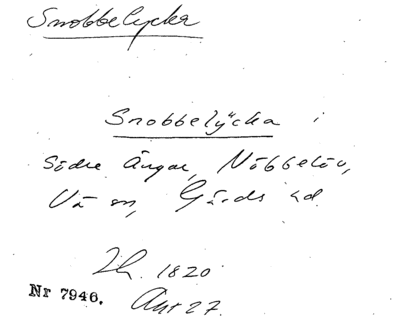 Snobbelycka
Snobbelycka i
Södre Ängar, Nöbbelöv,
Vä sn, Gärds hd.
Lh. 1820
Nr 7946. Akt 27.